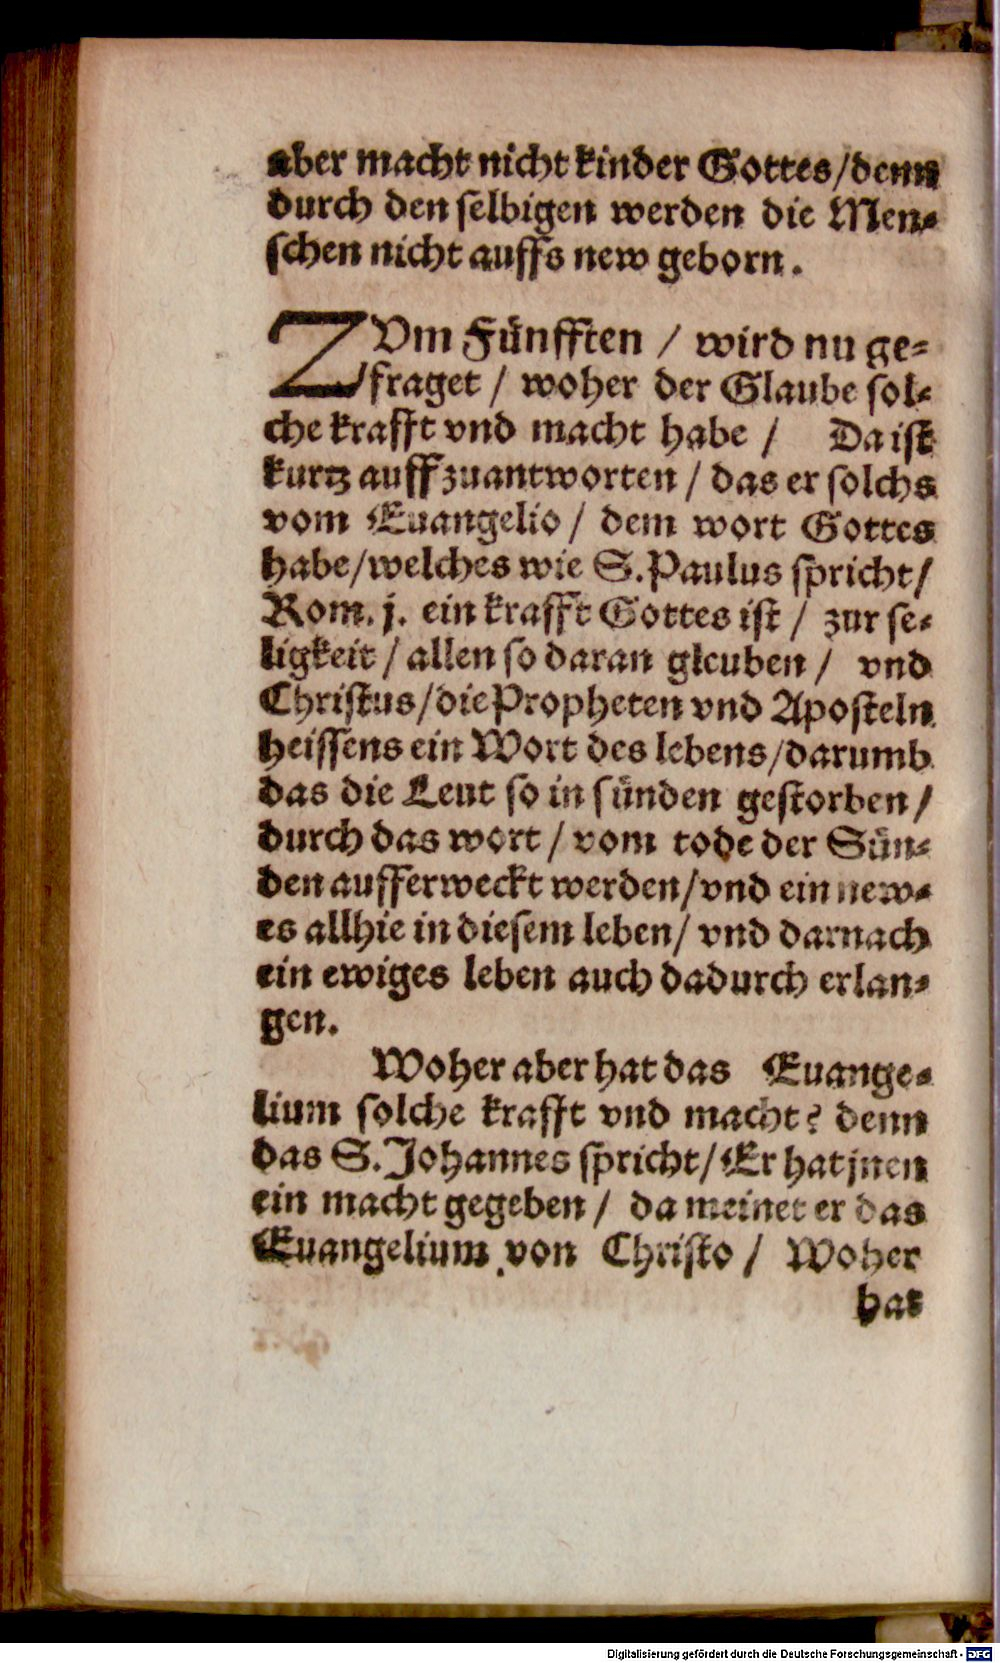 aber macht nicht kinder Gottes/denn
durch den selbigen werden die Men-
schen nicht auffs new geborn.
ZVm Fünfften / wird nu ge-
fraget / woher der Glaube sol-
che krafft vnd macht habe / Da ist
kurtz auff zuantworten / das er solchs
vom Euangelio / dem wort Gottes
habe/welches wie S. Paulus spricht/
Rom. j. ein krafft Gottes ist / zur se-
ligkeit / allen so daran gleuben / vnd
Christus/die Propheten vnd Aposteln
heissens ein Wort des lebens/darumb
das die Leut so in sünden gestorben /
durch das wort / vom tode der Sün-
den aufferweckt werden/vnd ein new-
es allhie in diesem leben/ vnd darnach
ein ewiges leben auch dadurch erlan-
gen.
Woher aber hat das Euange-
lium solche krafft vnd macht? denn
das S. Johannes spricht/Er hat jnen
ein macht gegeben / da meinet er das
Euangelium von Christo / Woher
hat
Digitalisierung gefördert durch die Deutsche Forschungsgemeinschaft - DFG